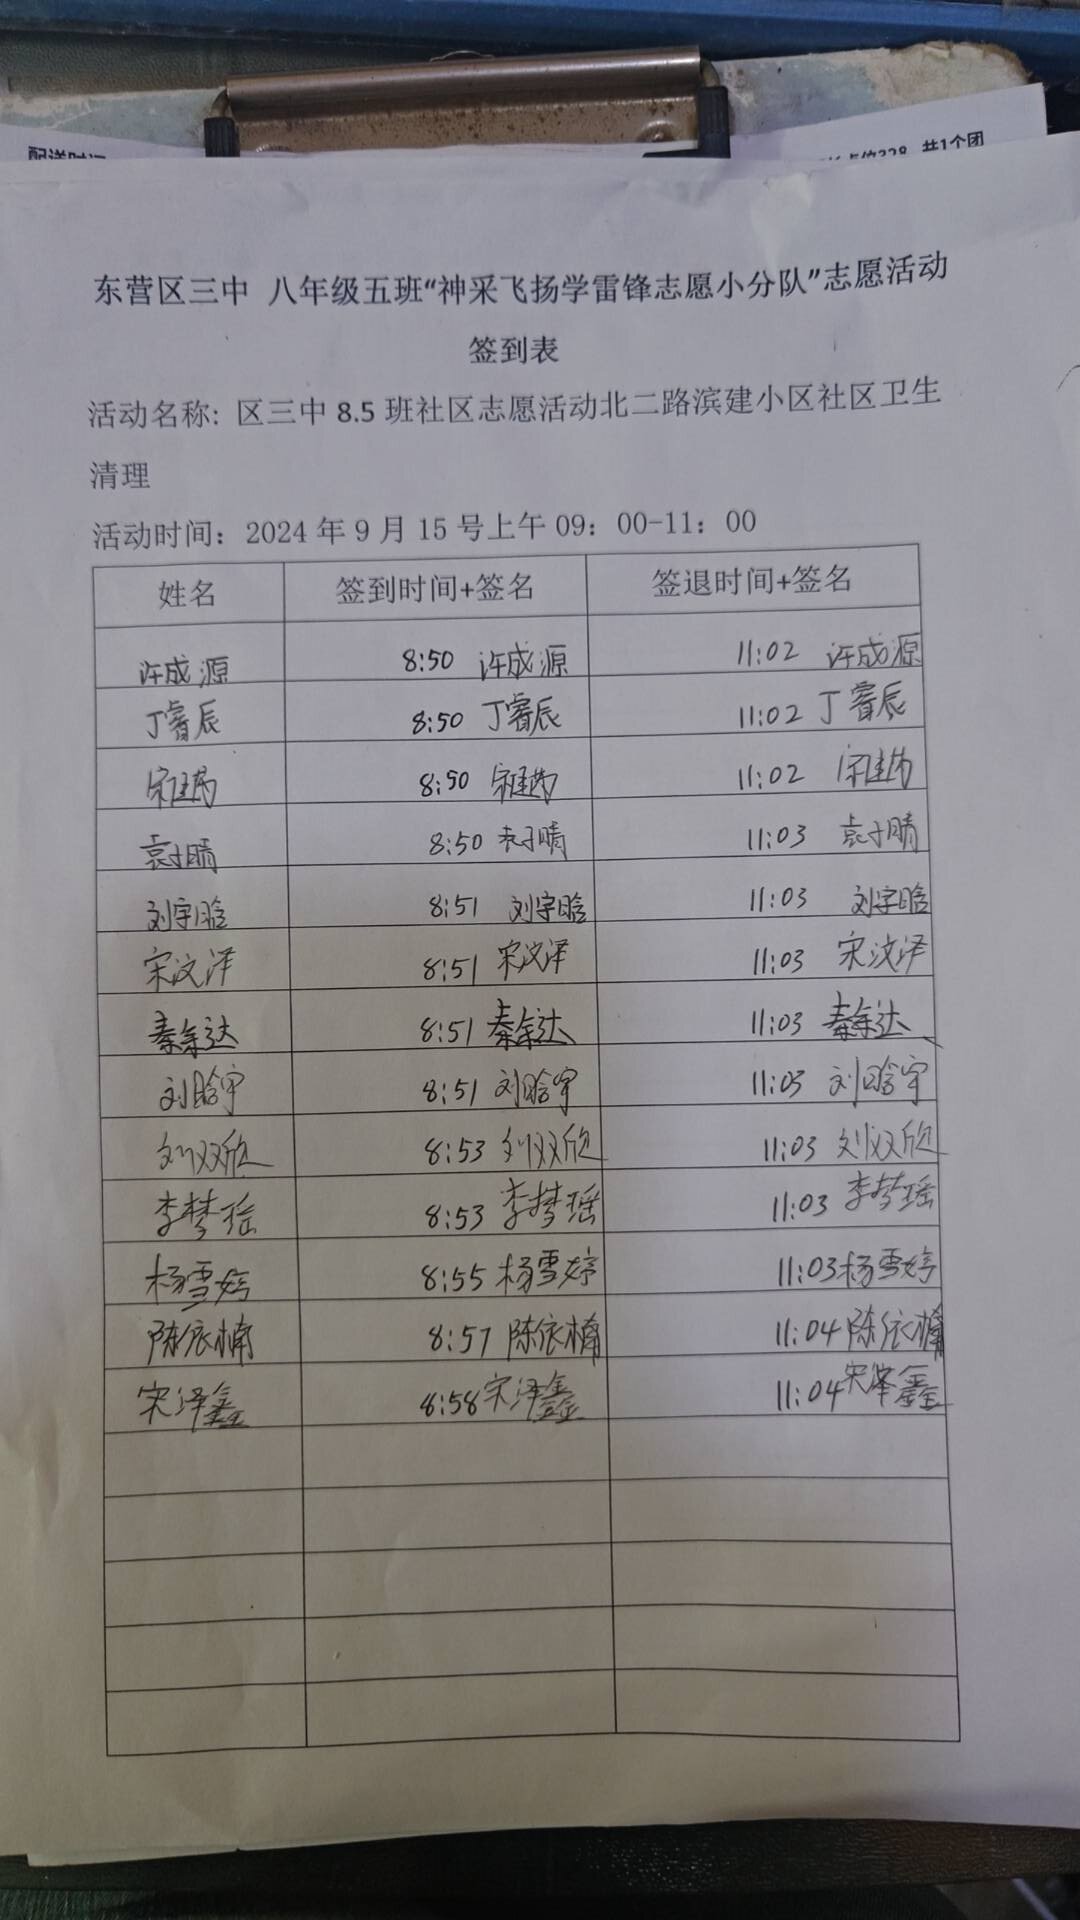 配送时间
点位328 共1个团
东营区三中 八年级五班“神采飞扬学雷锋志愿小分队”志愿活动
签到表
活动名称: 区三中 8.5 班社区志愿活动北二路滨建小区社区卫生
清理
活动时间: 2024 年 9 月 15 号上午 09: 00-11: 00
姓名 签到时间+签名 签退时间+签名
许成源 8:50 许成源 11:02 许成源
丁睿辰 8:50 丁睿辰 11:02 丁睿辰
8:50 11:02
袁子晴 8:50 袁子晴 11:03 袁子晴
刘宇晗 8:51 刘宇晗 11:03 刘宇晗
宋汶泽 8:51 宋汶泽 11:03 宋汶泽
秦余达 8:51 秦余达 11:03 秦余达
刘晗宇 8:51 刘晗宇 11:03 刘晗宇
刘双欣 8:53 刘双欣 11:03 刘双欣
李梦瑶 8:53 李梦瑶 11:03 李梦瑶
杨雪婷 8:55 杨雪婷 11:03 杨雪婷
陈依楠 8:57 陈依楠 11:04 陈依楠
宋泽鑫 8:58 宋泽鑫 11:04 宋泽鑫